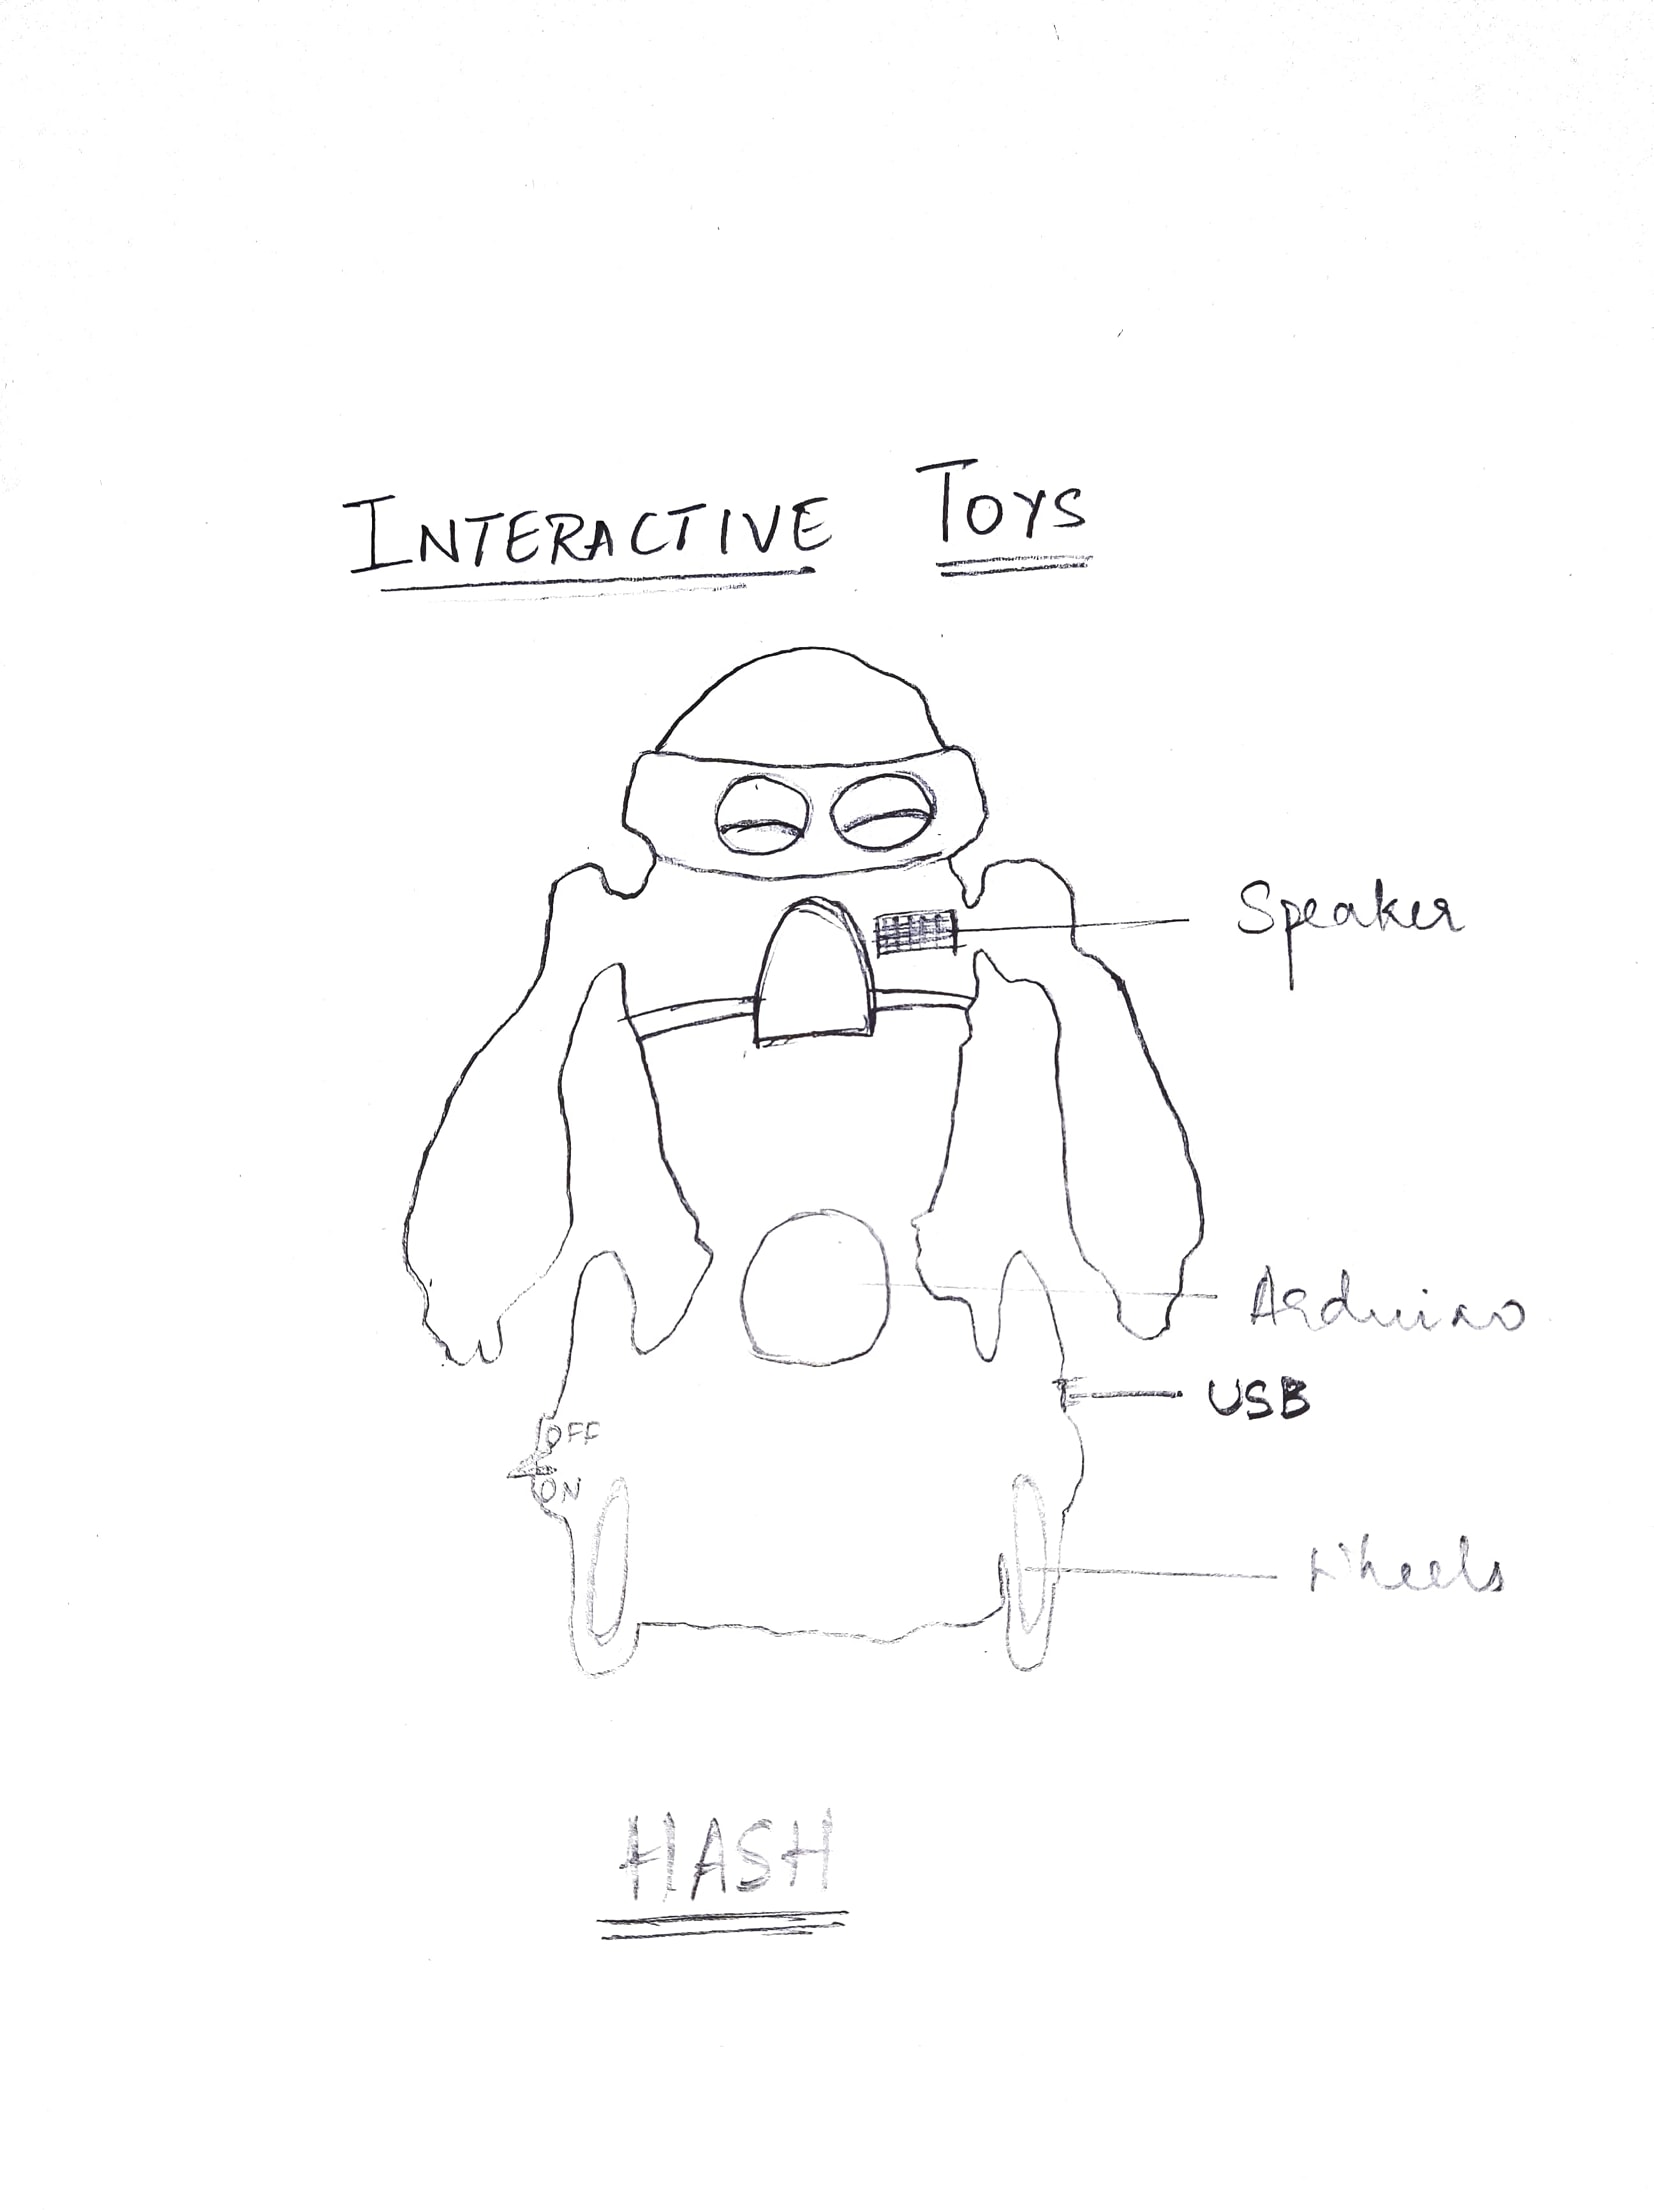 INTERACTIVE TOYS
Speaker
Arduino
USB
OFF
ON
Wheels
HASH